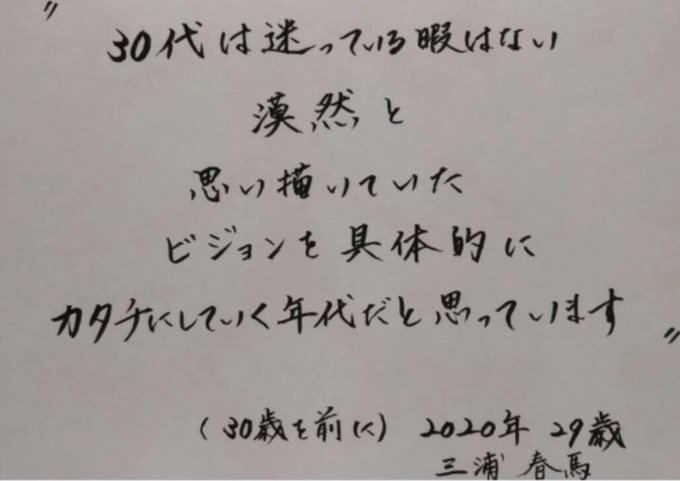 〃
30代は迷っている暇はない
漠然と
思い描いていた
ビジョンを具体的に
カタチにしていく年代だと思っています
〃
(30歳を前に) 2020年 29歳
三浦 春馬